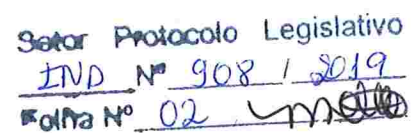 Setor Protocolo Legislativo
IND Nº 908 / 2019
Folha Nº 02